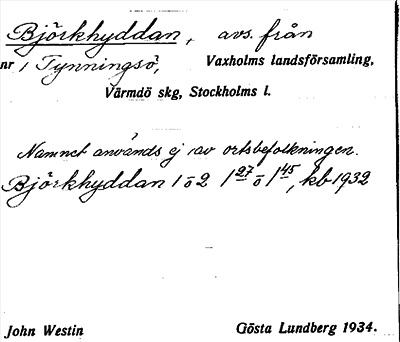 Björkhyddan, avs. från
nr 1 Tynningsö, Vaxholms landsförsamling,
Värmdö skg, Stockholms l.
Namnet används ej av ortsbefolkningen.
Björkhyddan 1 o 2 1 27 o 1 45, kb 1932
John Westin Gösta Lundberg 1934.